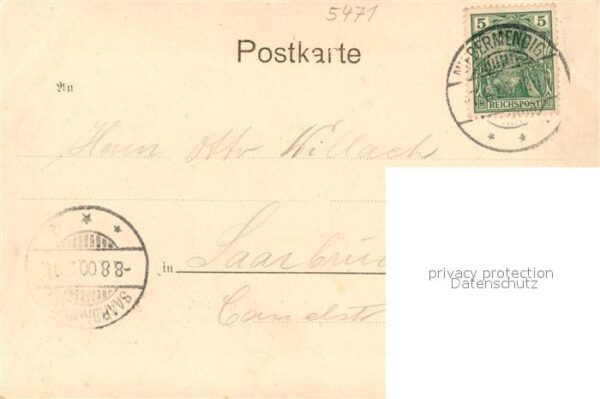 5471
Postkarte
5 5
REICHSPOST
NIEDERMENDIG
An
Herrn Otto Willach
in Saarbrü
-8.8.00.
SAARBR
privacy protection
Datenschutz